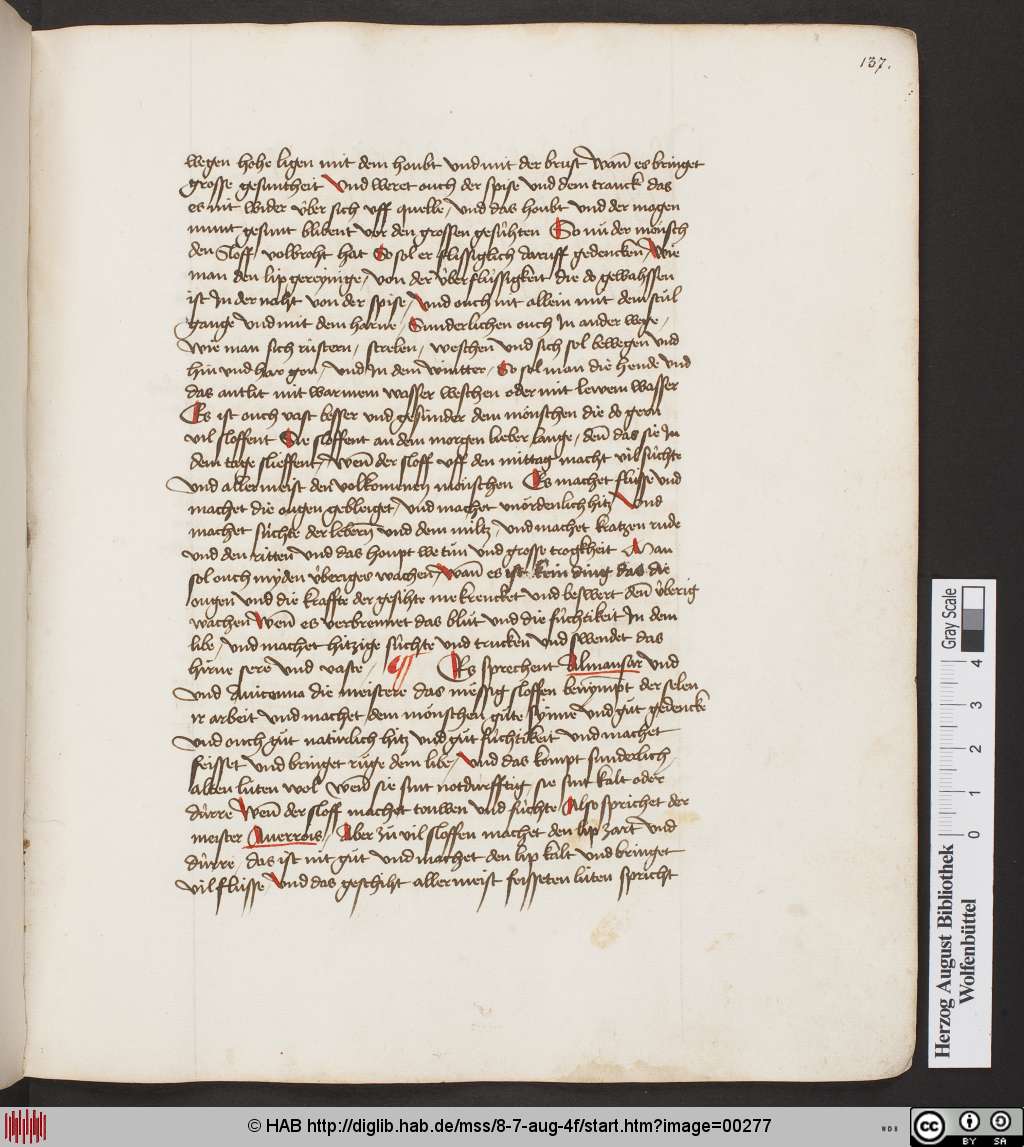 137.
wegen hohe ligen mit dem houbt vnd mit der brust wan̄ es bringet
grosse gesuntheit Vnd weret ouch der spise vnd dem tranck das
es nit wider v̈ber sich vff quelle / vnd das houbt vnd der magen
gesunt blibent vor den grossen gesühten So nü der mönsch
den Sloff / volbroht hat So sol er flissiglich daruff gedencken / wie
man den lip gereynige / von der v̈berflüssigkeit die do gewahssen
ist In der naht von der spise / Vnd ouch nit allein mit dem stül
gange vnd mit dem harne / Sunderlichen ouch In ander wege /
wie man sich rüstern / strelen / weschen vnd sich sol bewegen vnd
hin vnd har gon / vnd In dem wintter / So sol man die hende vnd
das antlit mit warmem wasser weschen oder mit lewem wasser
Es ist ouch vast besser vnd gesünder dem mönschen die do gern
vil sloffent Sie sloffent an dem morgen lieber lange / den̄ das sie In
dem tage slieffent / wen̄ der sloff vff den mittag macht vil süchte
vnd aller meist den volkommen mönschen Es machet flüsse vnd
machet die ougen gebleiget / vnd machet vnördenlich hitz Vnd
machet süchte der lebern vnd dem miltz / vnd machet kratzen rude
vnd den ritten vnd das houpt we tün vnd grosse trogkheit Man
sol ouch myden v̈beriges wachen / wan̄ es ist kein ding das die
ougen vnd die kraffte der gesihte me krencket vnd beswert den̄ v̈berig
wachen Wen̄ es verbrennet das blüt vnd die füchtikeit In dem
libe / vnd machet hitzige süchte vnd trucken vnd swendet das
hirne sere vnd vaste / Es sprechent Almansar vnd
vnd Auicenna die meistere das messig sloffen benympt der selen
ir arbeit vnd machet dem mönschen güte synne vnd güt gedencke
vnd ouch güt natürlich hitz vnd güt füchtikeit vnd machet
feisset vnd bringet rüge dem libe / Vnd das kompt sunderlich /
alten lüten wol wen̄ sie sint notdurfftig sie sint kalt oder
dürre Wen̄ der sloff machet touwen vnd füchte Also sprichet der
meister Auerrois / Aber zü vil sloffen machet den lip zart vnd
dürre das ist nit güt vnd machet den lip kalt vnd bringet
vil flüsse / Vnd das geschiht aller meist feisseten lüten spricht
Herzog August Bibliothek
Wolfenbüttel
Gray Scale
0 1 2 3 4
© HAB http://diglib.hab.de/mss/8-7-aug-4f/start.htm?image=00277
WDB
CC BY SA